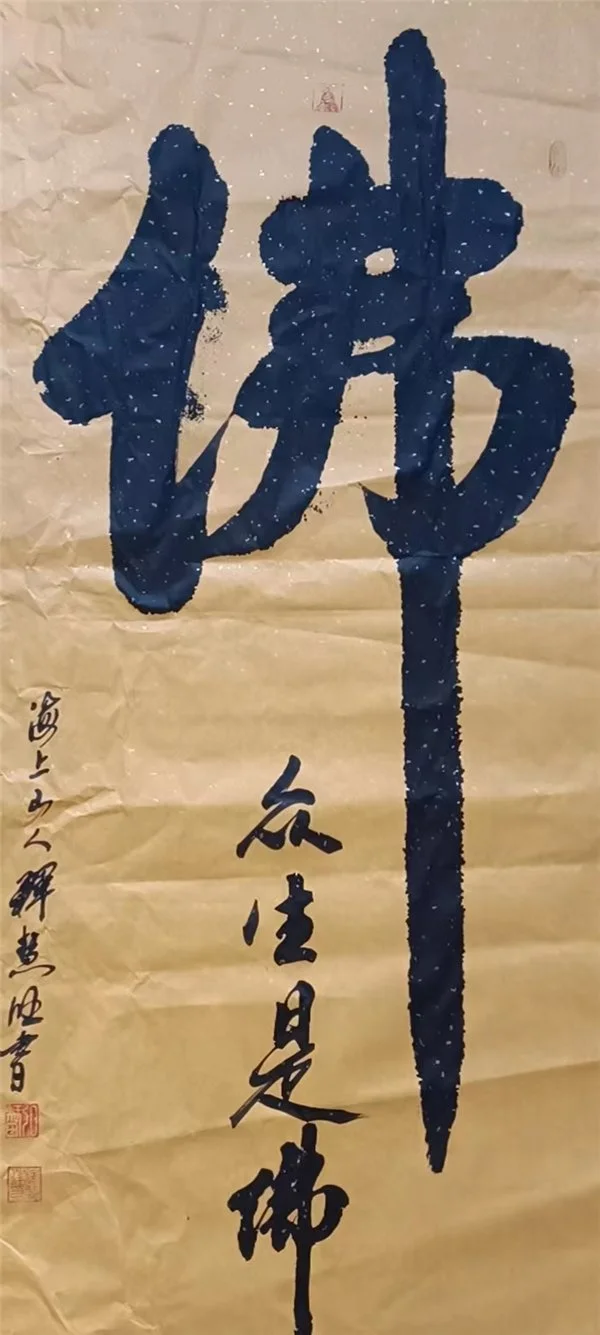 佛
众生是佛
海上山人释慧旺书